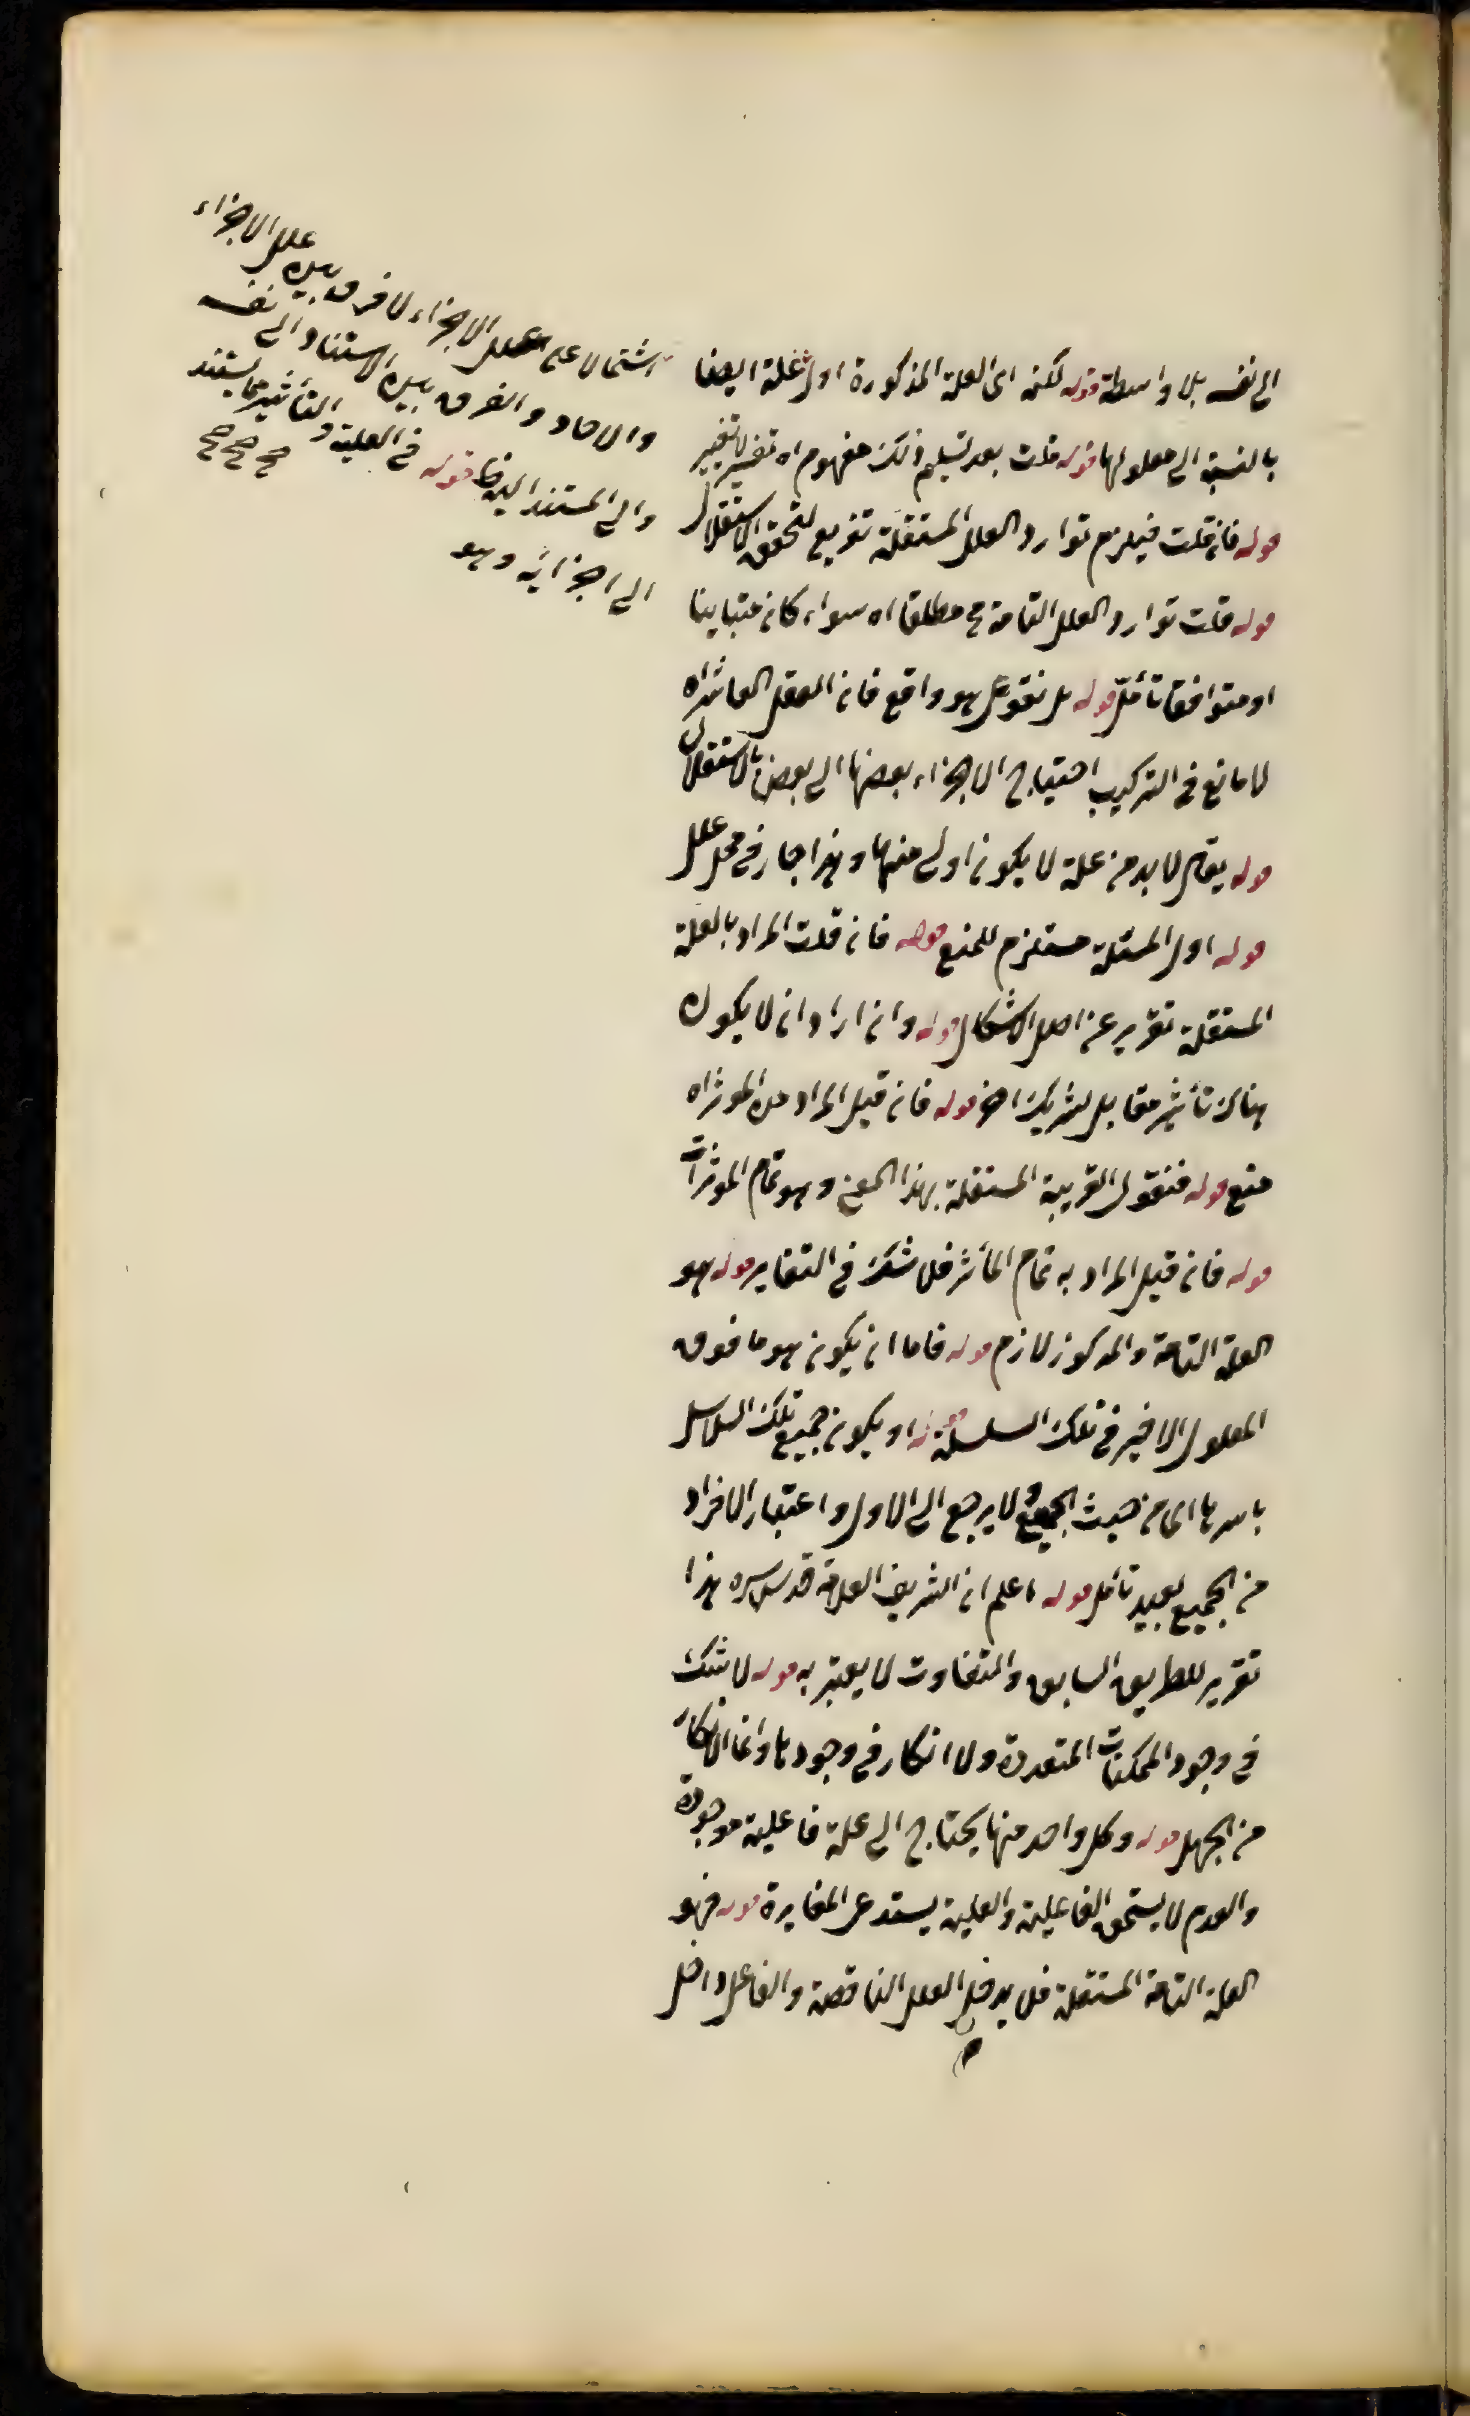 الى نفسه بلا واسطة قوله لكنه اى العلة المذكورة اول علة ايضا
بالنسبة الى معلولها قوله قلت بعد تسليم ذلك مفهوم اه تفسير
قوله فان قلت فيلزم توارد العلل المستقلة تفريع لتحقق الاستقلال
قوله قلت توارد العلل التامة مح مطلقا اه سواء كان متباينا
او متوافقا تأمل قوله بل نقول هو واقع فان العقل العاشر اه
لا مانع فى التركيب احتياج الاجزاء بعضها الى بعض بالاستقلال
قوله يقال لا بد من علة لا يكون اولى منها وهذا جار فى محل علل
قوله اول المسئلة مستلزم للمنع قوله فان قلت المراد بالعلة
المستقلة تقرير عن اصل الاشكال قوله وان اراد ان لا يكون
هناك تأثير مقابل لشريك اخر قوله فان قيل المراد من المؤثر اه
منع قوله فنقول القريبة المستقلة بهذا المعنى وهو تمام المؤثرات
قوله فان قيل المراد به تمام المأثر فلا شك فى التغاير قوله هو
العلة التامة والمذكور لازم قوله فاما ان يكون هو ما فوق
المعلول الاخير فى تلك السلسلة قوله او يكون جميع تلك السلاسل
باسرها اى من حيث الجميع ولا يرجع الى الاول واعتبار الافراد
من الجميع بعيد تأمل قوله اعلم ان الشريف العلامة قدس سره هذا
تقرير للطريق السابق والتفاوت لا يعتبر به قوله لا شك
فى وجود الممكنات المتعددة ولا انكار فى وجودها وانما الانكار
من الجهل قوله وكل واحد منها يحتاج الى علة فاعلية موجودة
والعدم لا يستحق الفاعلية والعلية يستدعى المغايرة قوله فهو
العلة التامة المستقلة فلا يدخل العلل الناقصة والفاعل داخل
اشتمالا على علل الاجزاء لا فرق بين علل الاجزاء
والاحاد والفرق بين الاستناد الى نفسه
والى المستند اليه قوله فى العلية والتأثير ما يستند
الى اجزائه وهو صح صح صح